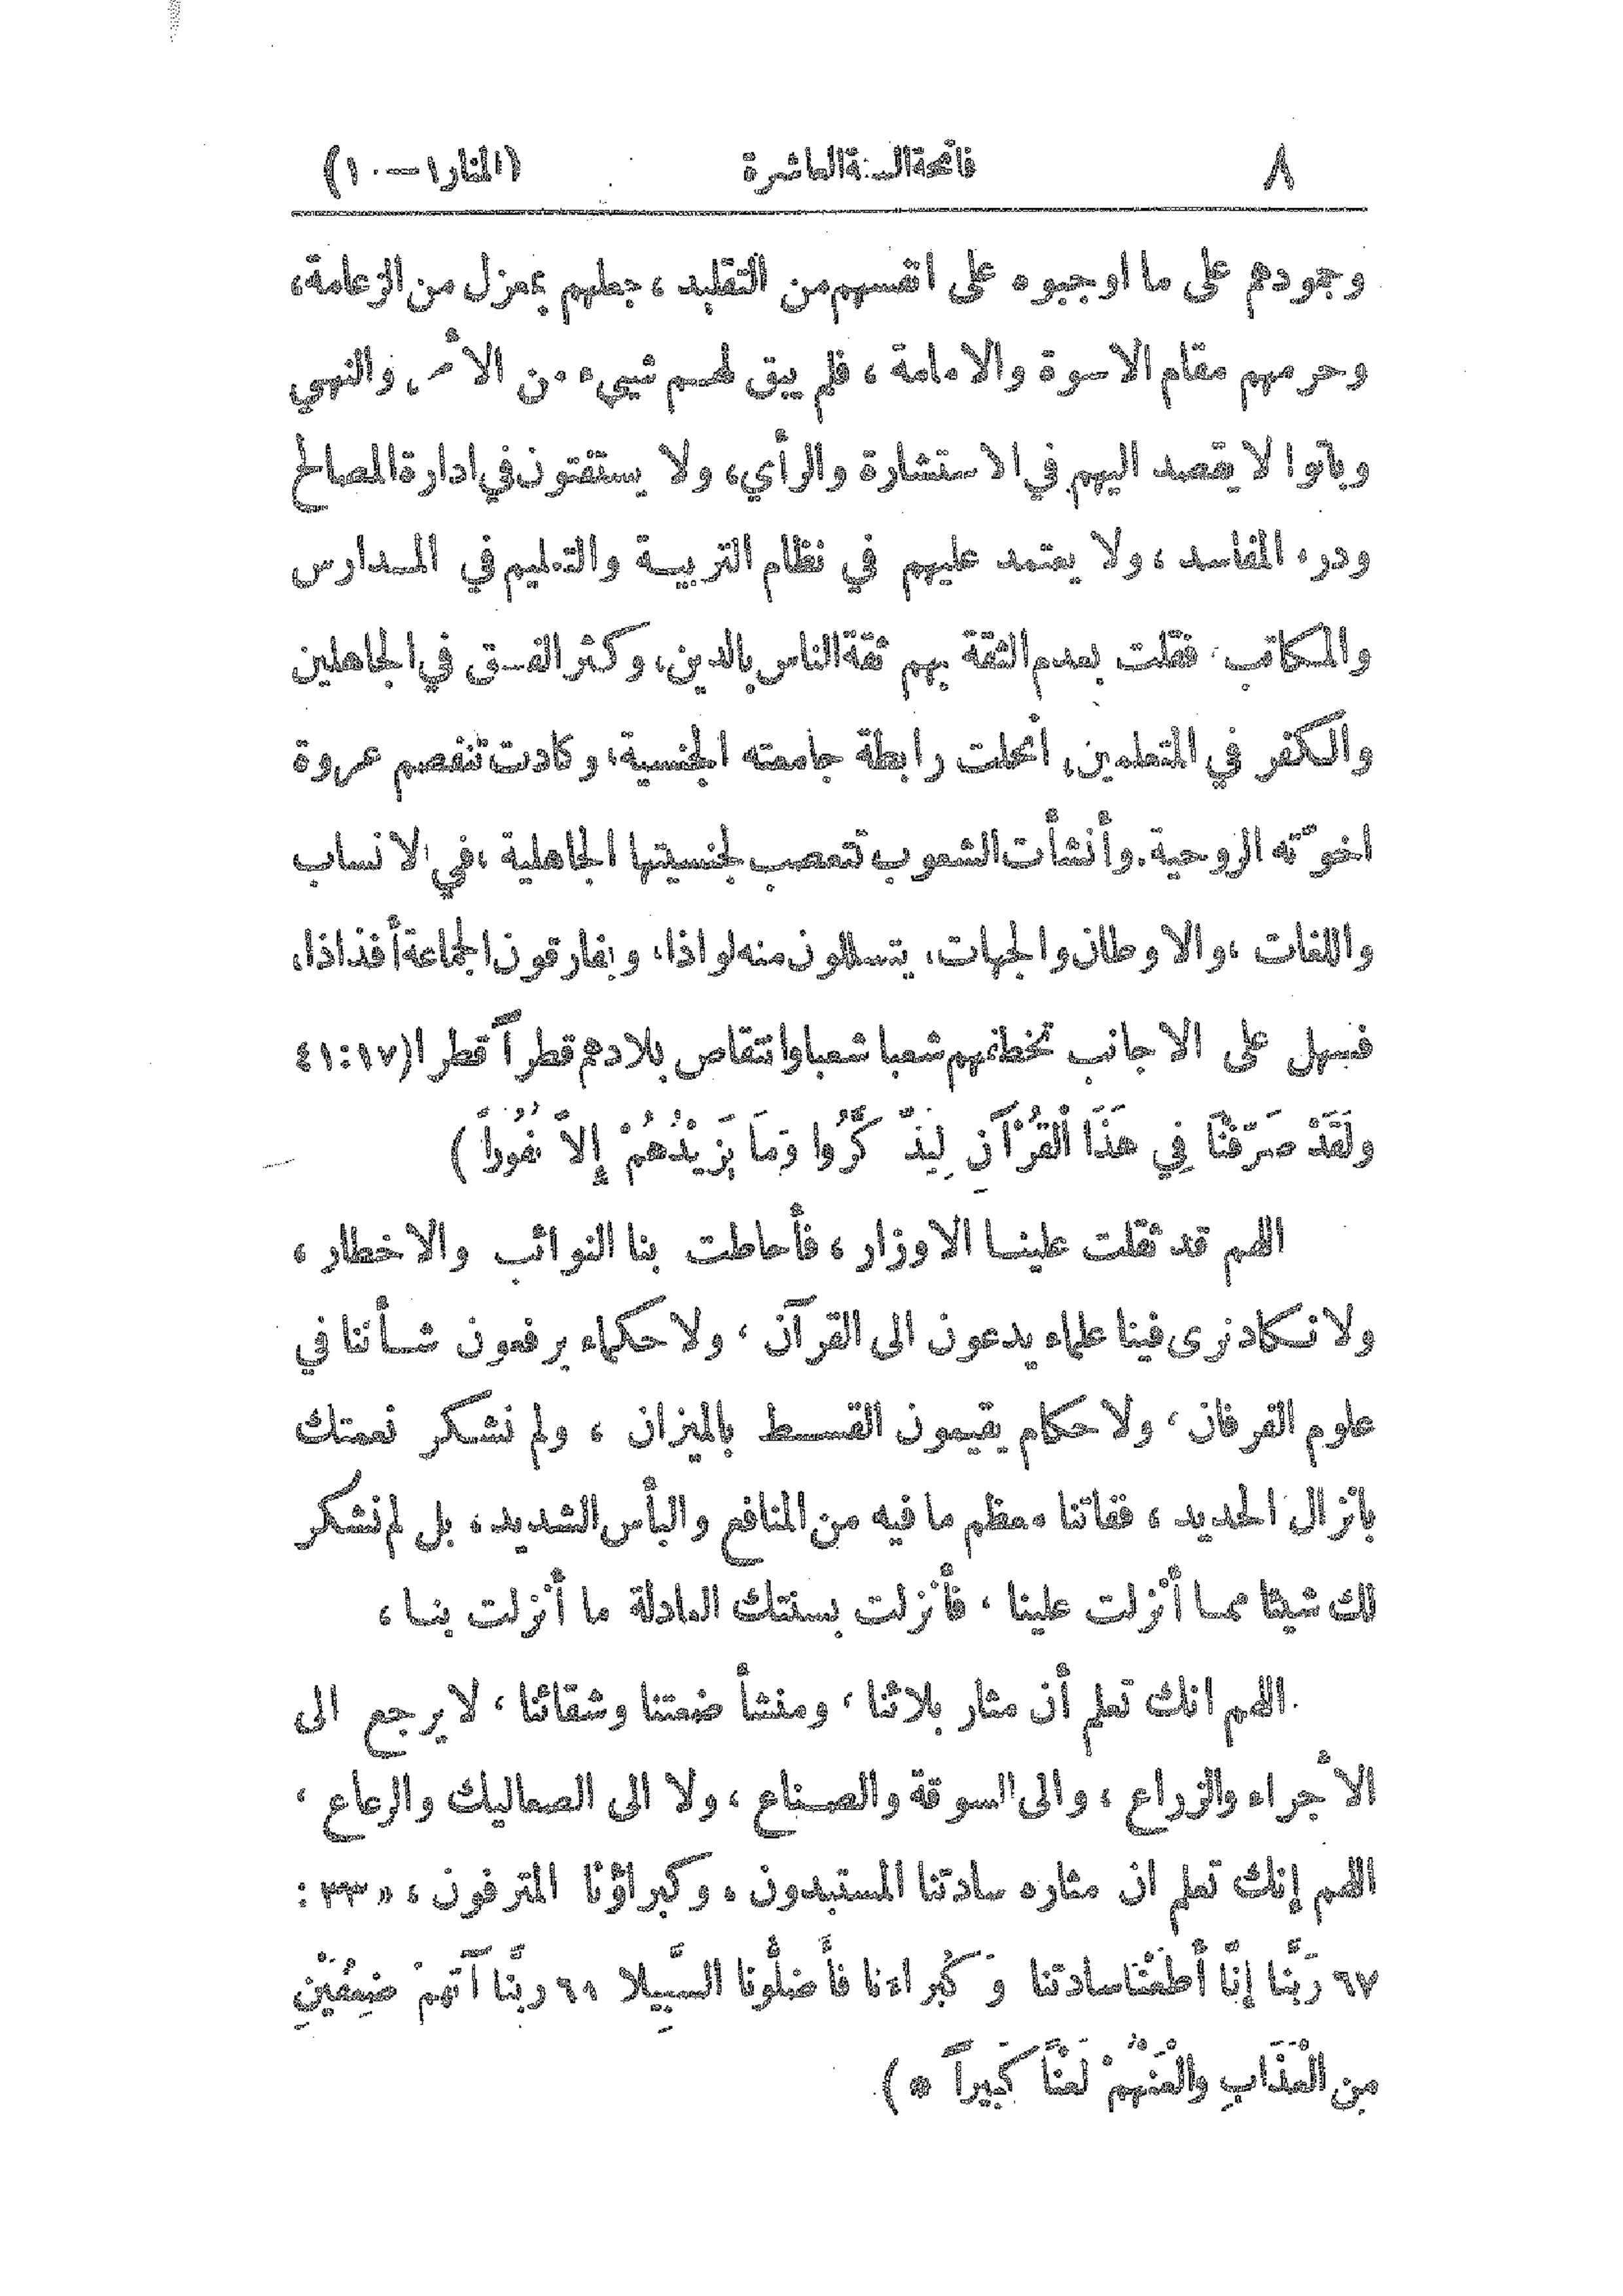 ٨ فاتحة السنة العاشرة (المنار ١ — ١٠)
وجمودهم على ما اوجبوه على انفسهم من التقليد ، جعلهم بمعزل من الزعامة،
وحرمهم مقام الاسوة والامامة ، فلم يبق لهم شيء من الأمر والنهي
وباتوا لا يقصد اليهم في الاستشارة والرأي، ولا يستفتون في ادارة المصالح
ودرء المفاسد ، ولا يعتمد عليهم في نظام التربية والتعليم في المدارس
والمكاتب، فقلت بعدم الثقة بهم ثقة الناس بالدين، وكثر الفسق في الجاهلين
والكفر في المتعلمين، انحلت رابطة جامعته الجنسية، وكادت تنفصم عروة
اخوّته الروحية. وأنشأت الشعوب تتعصب لجنسيتها الجاهلية ، في الانساب
واللغات ، والاوطان والجهات، يتسللون منه لواذا، ويفارقون الجماعة أفذاذا،
فسهل على الاجانب تخطفهم شعبا شعبا وانتقاص بلادهم قطراً قطرا (١٧ : ٤١
ولَقَدْ صَرَّفْنَا فِي هَذَا الْقُرْآنِ لِيَذَّكَّرُوا وَمَا يَزِيْدُهُمْ إِلاَّ نُفُوراً )
اللهم قد ثقلت علينا الاوزار ، فأحاطت بنا النوائب والاخطار ،
ولا نكاد نرى فينا علماء يدعون الى القرآن ، ولا حكماء يرفعون شأننا في
علوم الفرقان ، ولا حكام يقيمون القسط بالميزان ، ولم نشكر نعمتك
بانزال الحديد ، ففاتنا معظم ما فيه من المنافع والبأس الشديد ، بل لم نشكر
لك شيئا مما أنزلت علينا ، فأنزلت بسنتك العادلة ما أنزلت بنا ،
اللهم انك تعلم أن مثار بلائنا ، ومنشأ ضعتنا وشقائنا ، لا يرجع الى
الأجراء والزراع ، والى السوقة والصناع ، ولا الى الصعاليك والرعاع ،
اللهم إنك تعلم ان مثاره سادتنا المستبدون ، وكبراؤنا المترفون ، « ٣٣ :
٦٧ رَبَّنَا إِنَّا أَطَعْنَا سادتنا وَكُبراءنا فأَضلُّونا السَّبِيلا ٦٨ ربَّنا آتهمْ ضِعفَيْنِ
مِن الْعَذَابِ والْعَنْهُمْ لَعْنًا كَبِيراً * )